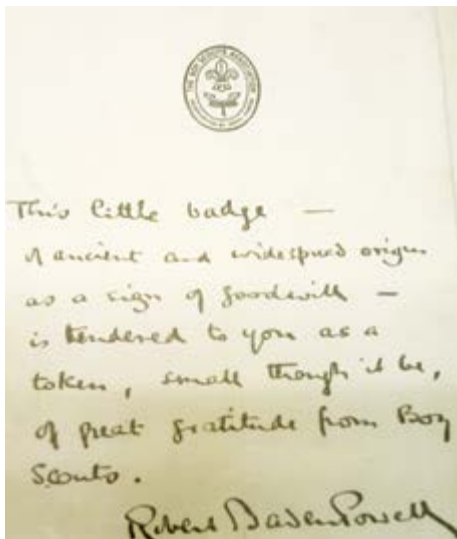 THE BOY SCOUTS ASSOCIATION
This little badge —
of ancient and widespread origin
as a sign of goodwill —
is tendered to you as a
token, small though it be,
of great gratitude from Boy
Scouts.
Robert Baden Powell